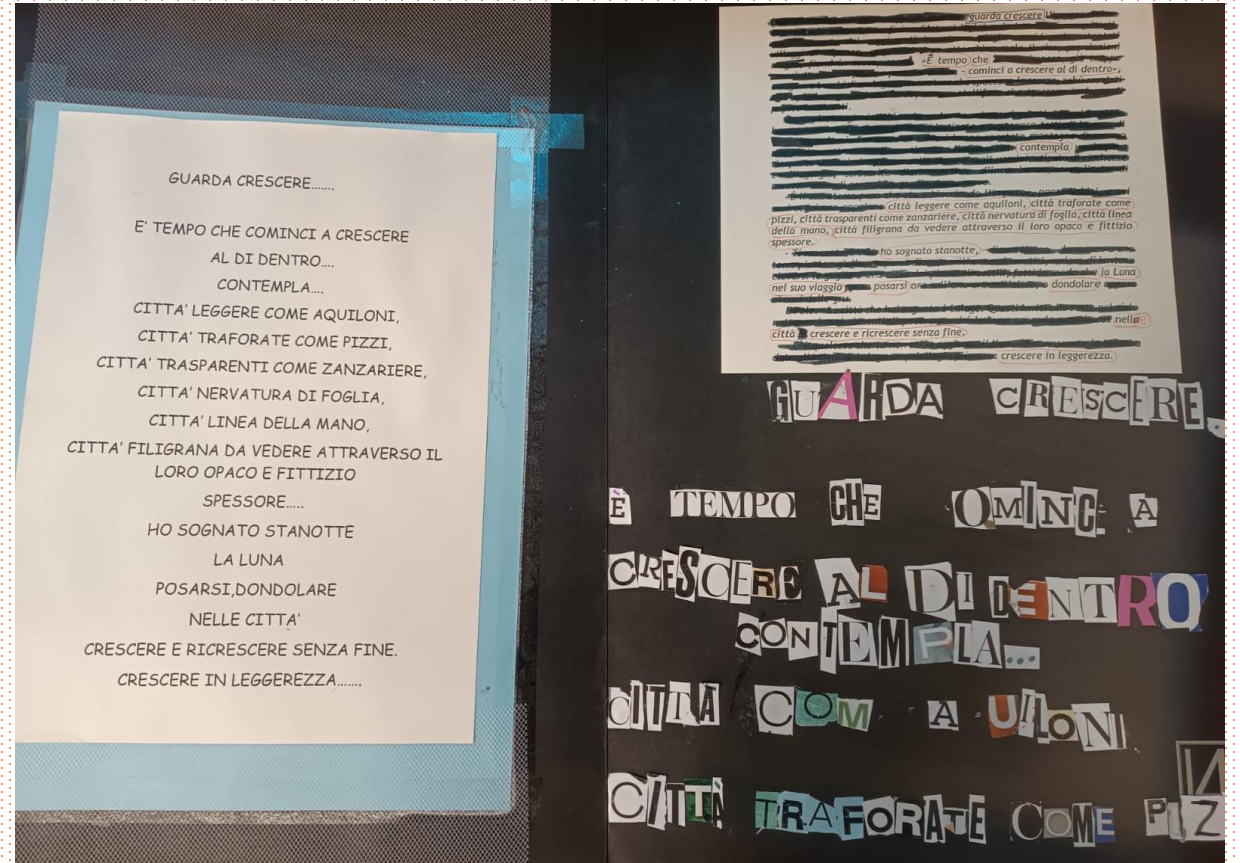 GUARDA CRESCERE.......
E' TEMPO CHE COMINCI A CRESCERE
AL DI DENTRO....
CONTEMPLA....
CITTA' LEGGERE COME AQUILONI,
CITTA' TRAFORATE COME PIZZI,
CITTA' TRASPARENTI COME ZANZARIERE,
CITTA' NERVATURA DI FOGLIA,
CITTA' LINEA DELLA MANO,
CITTA' FILIGRANA DA VEDERE ATTRAVERSO IL
LORO OPACO E FITTIZIO
SPESSORE.....
HO SOGNATO STANOTTE
LA LUNA
POSARSI,DONDOLARE
NELLE CITTA'
CRESCERE E RICRESCERE SENZA FINE.
CRESCERE IN LEGGEREZZA.......
guarda crescere
«È tempo che
- cominci a crescere al di dentro»,
contempla
città leggere come aquiloni, città traforate come
pizzi, città trasparenti come zanzariere, città nervatura di foglia, città linea
della mano, città filigrana da vedere attraverso il loro opaco e fittizio
spessore.
ho sognato stanotte,
la Luna
nel suo viaggio posarsi dondolare
nella
città crescere e ricrescere senza fine.
crescere in leggerezza.
GUARDA CRESCERE.
È TEMPO CHE OMINC A
CRESCERE AL DI DENTRO
CONTEMPLA...
CITTA COM A UILONI
CITTÀ TRAFORATE COME PIZ